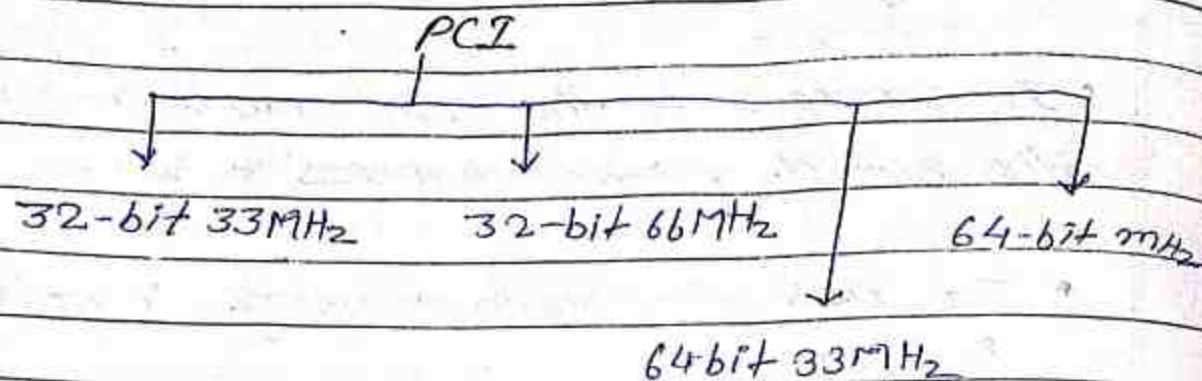 PCI
32-bit 33MHz 32-bit 66MHz 64-bit mHz
64bit 33MHz